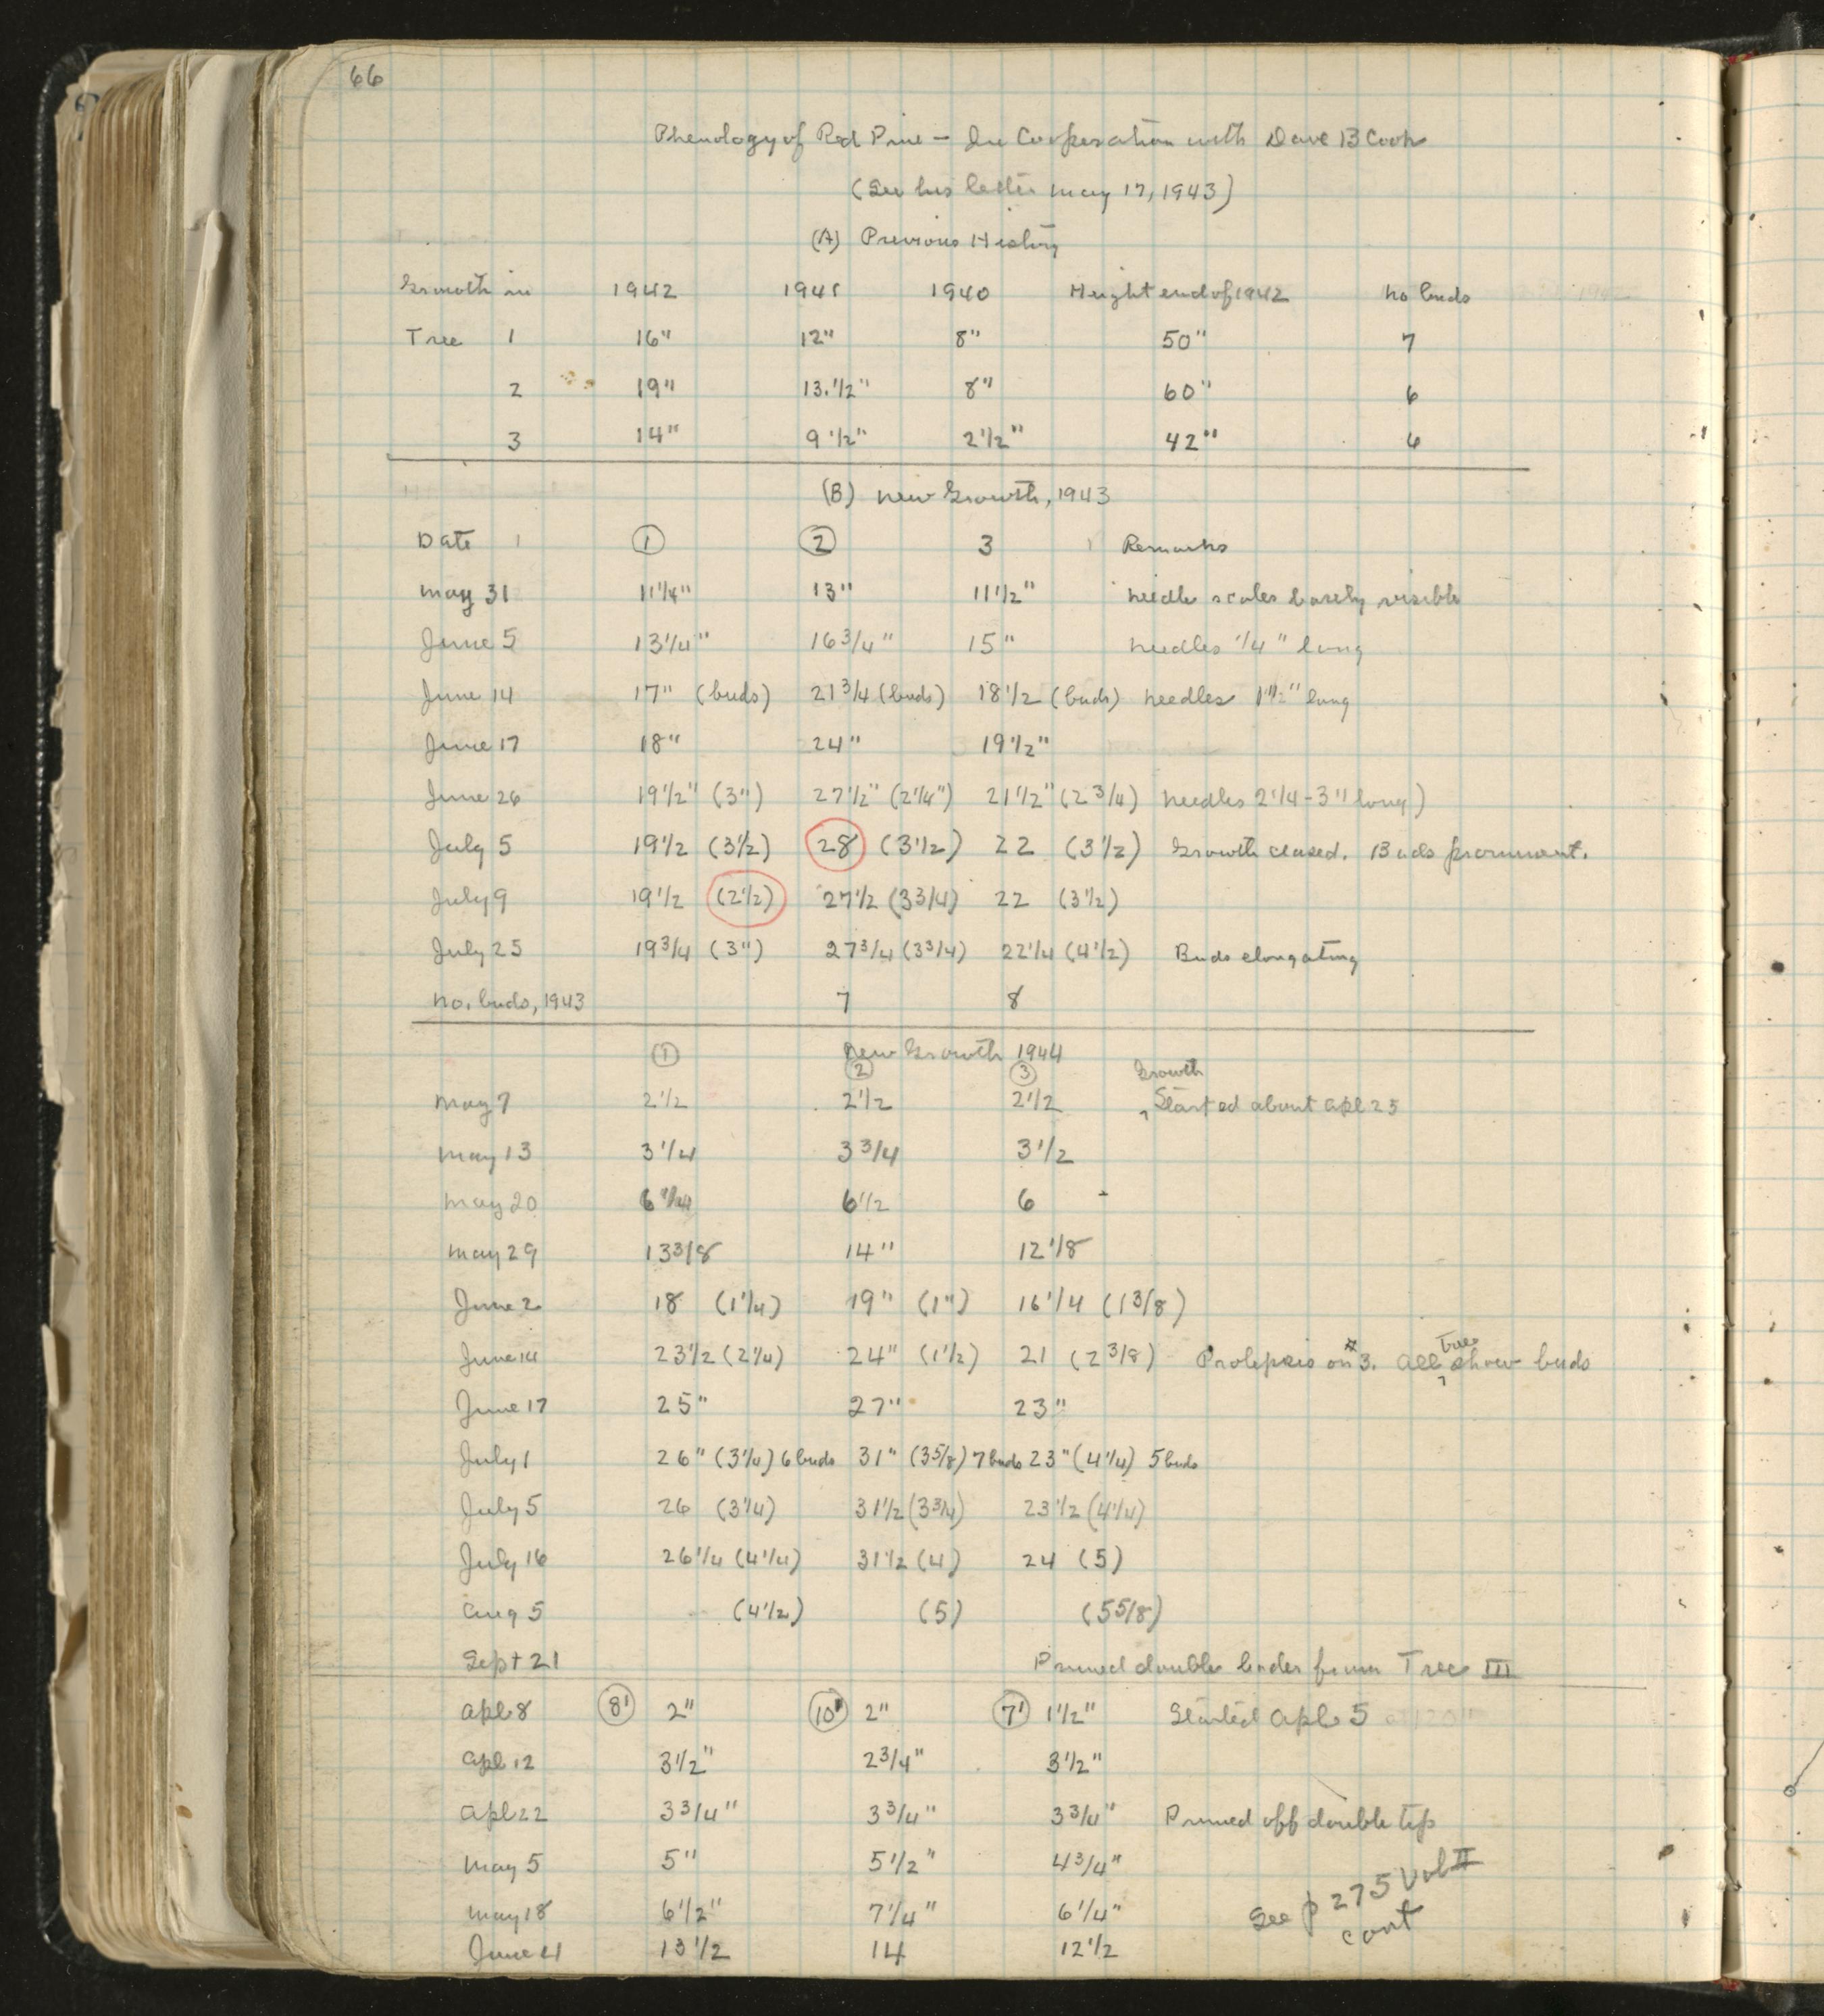 66
Phenology of Red Pine — In Cooperation with Dave B Cook
(See his letter May 17, 1943)
(A) Previous History
Growth in 1942 1941 1940 Height end of 1942 No buds
Tree 1 16" 12" 8" 50" 7
2 19" 13 1/2" 8" 60" 6
3 14" 9 1/2" 2 1/2" 42" 6
(B) New Growth, 1943
Date 1 2 3 Remarks
May 31 11 1/4" 13" 11 1/2" Needle scales barely visible
June 5 13 1/4" 16 3/4" 15" Needles 1/4" long
June 14 17" (buds) 21 3/4 (buds) 18 1/2 (buds) Needles 1 1/2" long
June 17 18" 24" 19 1/2"
June 26 19 1/2" (3") 27 1/2" (2 1/4") 21 1/2" (2 3/4) Needles 2 1/4 - 3" long)
July 5 19 1/2 (3 1/2) 28 (3 1/2) 22 (3 1/2) Growth ceased. Buds prominent.
July 9 19 1/2 (2 1/2) 27 1/2 (3 3/4) 22 (3 1/2)
July 25 19 3/4 (3") 27 3/4 (3 3/4) 22 1/4 (4 1/2) Buds elongating
No. buds, 1943 7 8
New Growth 1944
1 2 3 Growth
May 7 2 1/2 2 1/2 2 1/2 Started about Apl 25
May 13 3 1/4 3 3/4 3 1/2
May 20 6 1/4 6 1/2 6
May 29 13 3/8 14" 12 1/8
June 2 18 (1 1/4) 19" (1") 16 1/4 (1 3/8)
June 14 23 1/2 (2 1/4) 24" (1 1/2) 21 (2 3/8) Prolepsis on #3. All trees show buds
June 17 25" 27" 23"
July 1 26" (3 1/4) 6 buds 31" (3 5/8) 7 buds 23" (4 1/4) 5 buds
July 5 26 (3 1/4) 31 1/2 (3 3/4) 23 1/2 (4 1/4)
July 16 26 1/4 (4 1/4) 31 1/2 (4) 24 (5)
Aug 5 (4 1/2) (5) (5 5/8)
Sept 21 Pruned double leader from Tree III
Apl 8 8' 2" 10' 2" 7' 1 1/2" Started Apl 5
Apl 12 3 1/2" 2 3/4" 3 1/2"
Apl 22 3 3/4" 3 3/4" 3 3/4" Pruned off double top
May 5 5" 5 1/2" 4 3/4"
May 18 6 1/2" 7 1/4" 6 1/4"
See p 275 Vol II
cont
June 4 13 1/2 14 12 1/2